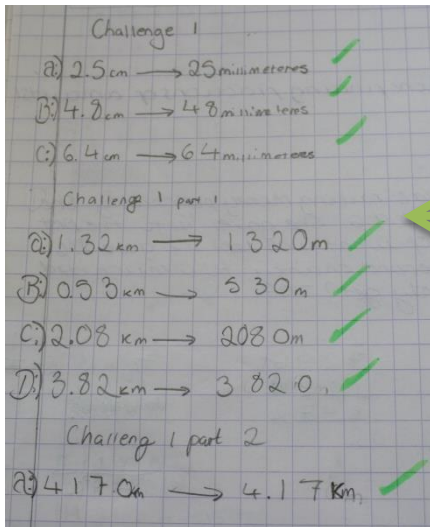 Challenge 1
a:) 2.5cm → 25millimeteres
B:) 4.8cm → 48millimeteres
C:) 6.4cm → 64millimeteres
Challenge 1 part 1
a:) 1.32km → 1320m
B:) 0.53km → 530m
C:) 2.08km → 2080m
D:) 3.82km → 3820
Challeng 1 part 2
a:) 4170m → 4.17Km